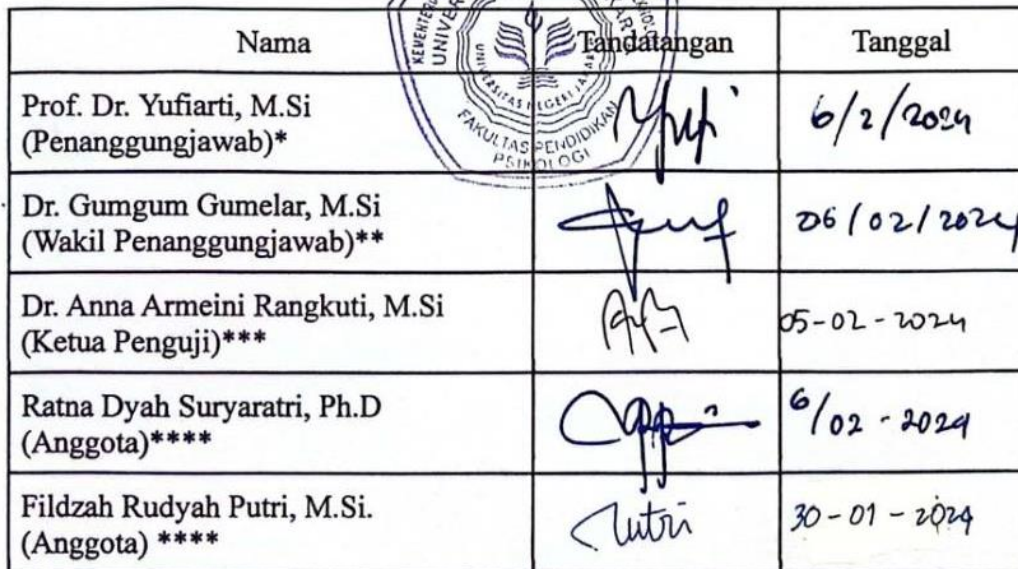 Nama Tandatangan Tanggal
Prof. Dr. Yufiarti, M.Si
(Penanggungjawab)* 6/2/2024
Dr. Gumgum Gumelar, M.Si
(Wakil Penanggungjawab)** 06/02/2024
Dr. Anna Armeini Rangkuti, M.Si
(Ketua Penguji)*** 05-02-2024
Ratna Dyah Suryaratri, Ph.D
(Anggota)**** 6/02-2024
Fildzah Rudyah Putri, M.Si.
(Anggota) **** Putri 30-01-2024
UNIVERSITAS NEGERI
FAKULTAS PENDIDIKAN
PSIKOLOGI